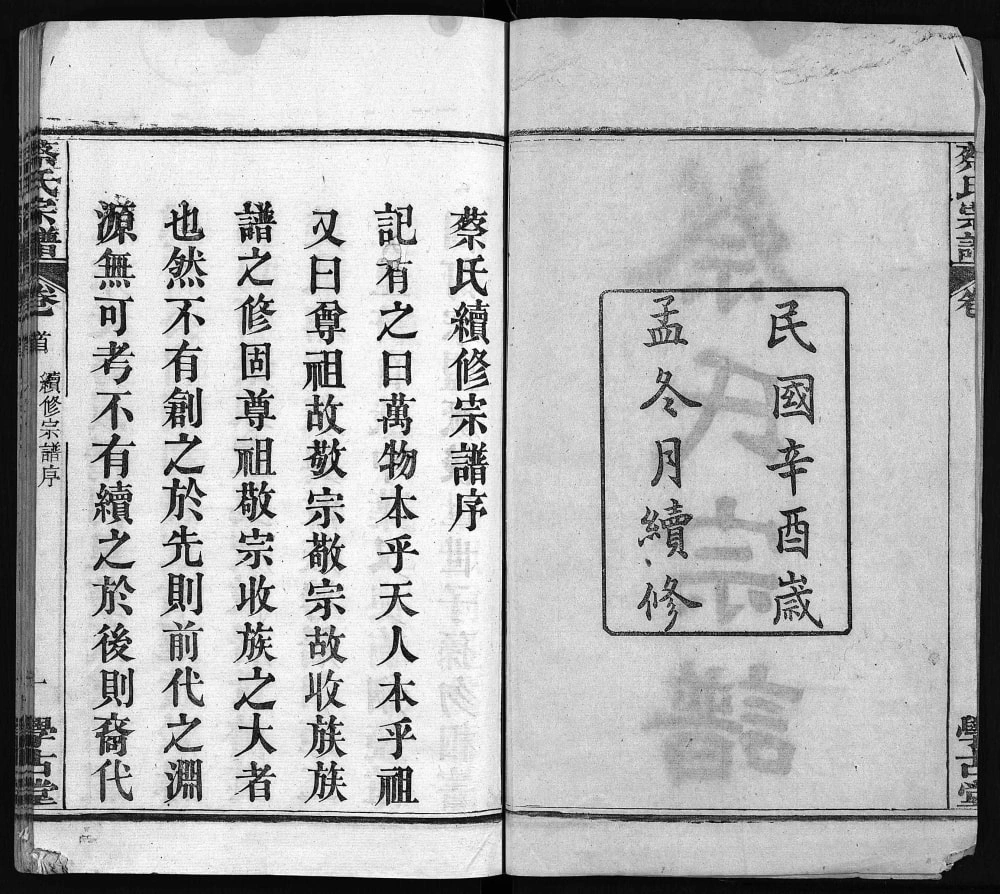 蔡氏宗譜
卷
學古堂
民國辛酉歲
孟冬月續修
蔡氏宗譜
蔡氏續修宗譜序
記有之曰萬物本乎天人本乎祖
又曰尊祖故敬宗敬宗故收族族
譜之修固尊祖敬宗收族之大者
也然不有創之於先則前代之淵
源無可考不有續之於後則裔代
蔡氏宗譜
卷首
續修宗譜序
一
學古堂